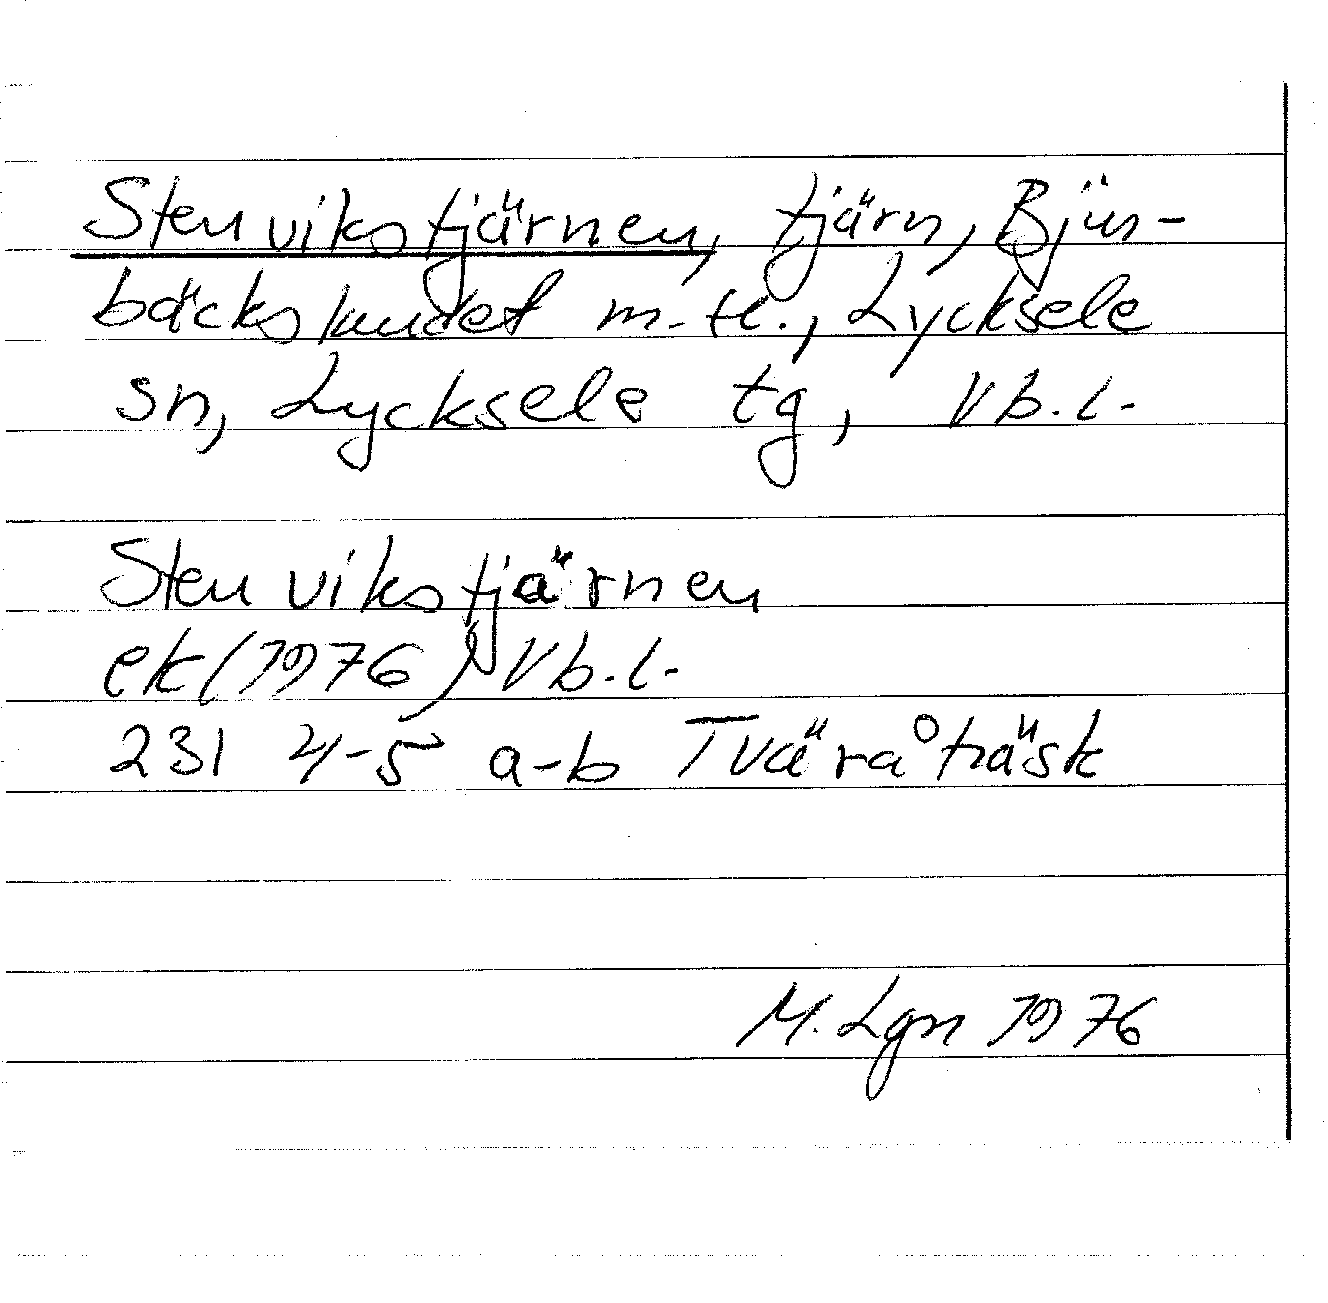 Stenvikstjärnen, tjärn, Björn-
bäckslandet m. fl., Lycksele
sn, Lycksele tg, Vb.l.
Stenvikstjärnen
ek (1976) Vb.l.
231 4-5 a-b Tväråträsk
M. Lgn 1976